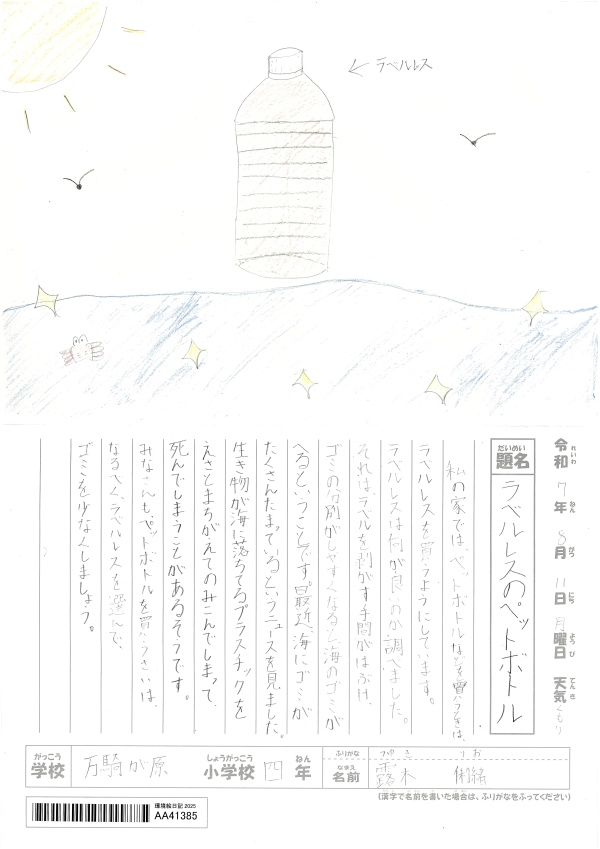 ← ラベルレス
令和7年8月11日月曜日 天気くもり
れいわ ねん がつ にち ようび てんき
だいめい
題名 ラベルレスのペットボトル
私の家では、ペットボトルなどを買うときは、
ラベルレスを買うようにしています。
ラベルレスは何が良いのか調べました。
それはラベルを剥がす手間がはぶけ、
ゴミの分別がしやすくなると海のゴミが
へるということです。最近、海にゴミが
たくさんたまっているというニュースを見ました。
生き物が海に落ちてるプラスチックを
えさとまちがえてのみこんでしまって、
死んでしまうことがあるそうです。
みなさんもペットボトルを買うときは、
なるべく、ラベルレスを選んで、
ゴミを少なくしましょう。
がっこう しょうがっこう ねん
学校 万騎が原 小学校 四 年
ふりがな つゆき りお
なまえ
名前 露木
(漢字で名前を書いた場合は、ふりがなをふってください)
環境絵日記 2025
AA41385